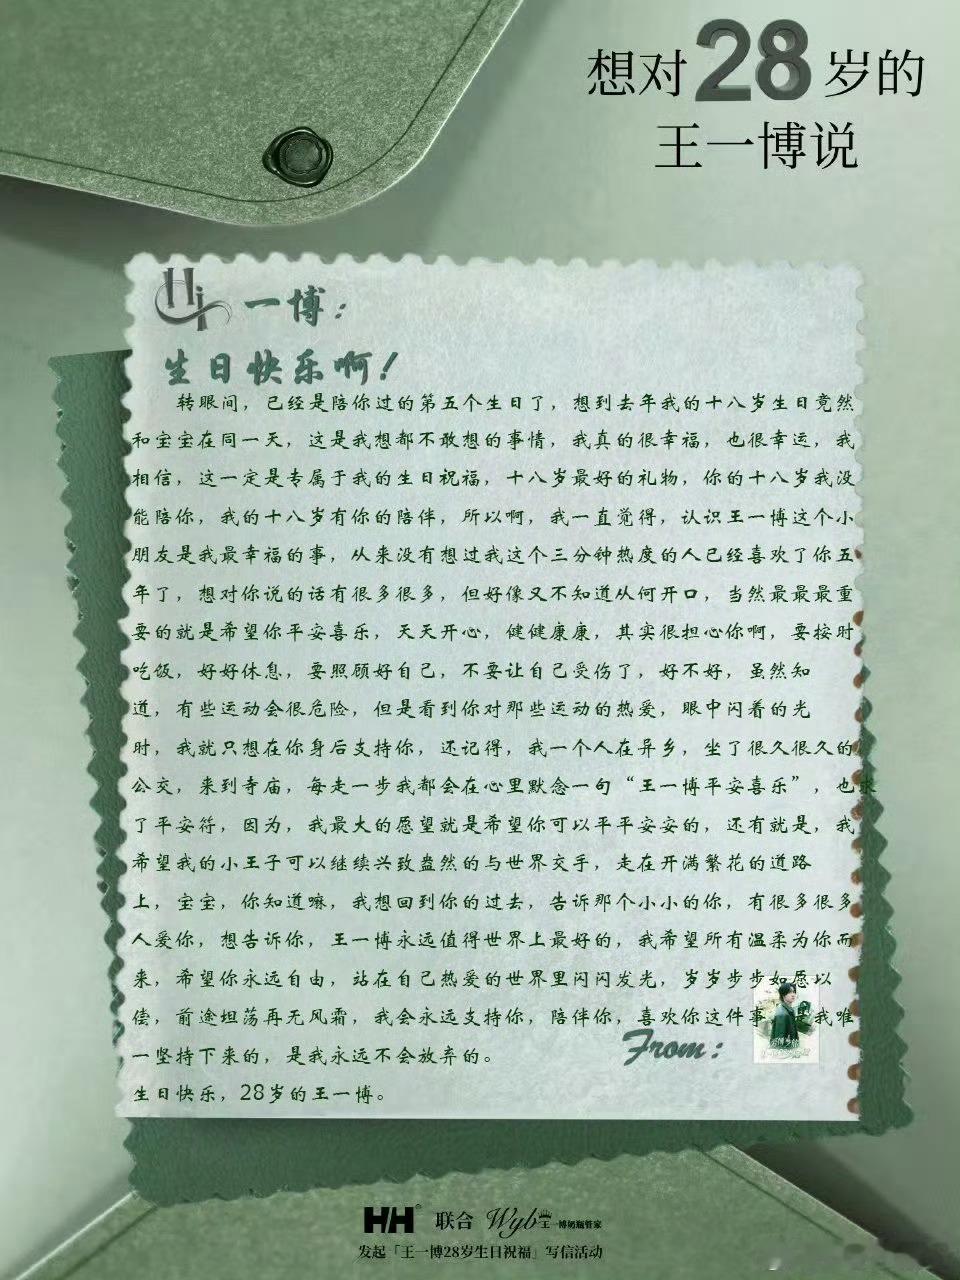 想对28岁的
王一博说
Hi 一博：
生日快乐啊！
转眼间，已经是陪你过的第五个生日了，想到去年我的十八岁生日竟然
和宝宝在同一天，这是我想都不敢想的事情，我真的很幸福，也很幸运，我
相信，这一定是专属于我的生日祝福，十八岁最好的礼物，你的十八岁我没
能陪你，我的十八岁有你的陪伴，所以啊，我一直觉得，认识王一博这个小
朋友是我最幸福的事，从来没有想过我这个三分钟热度的人已经喜欢了你五
年了，想对你说的话有很多很多，但好像又不知道从何开口，当然最最最重
要的就是希望你平安喜乐，天天开心，健健康康，其实很担心你啊，要按时
吃饭，好好休息，要照顾好自己，不要让自己受伤了，好不好，虽然知
道，有些运动会很危险，但是看到你对那些运动的热爱，眼中闪着的光
时，我就只想在你身后支持你，还记得，我一个人在异乡，坐了很久很久的
公交，来到寺庙，每走一步我都会在心里默念一句“王一博平安喜乐”，也求
了平安符，因为，我最大的愿望就是希望你可以平平安安的，还有就是，我
希望我的小王子可以继续兴致盎然的与世界交手，走在开满繁花的道路
上，宝宝，你知道嘛，我想回到你的过去，告诉那个小小的你，有很多很多
人爱你，想告诉你，王一博永远值得世界上最好的，我希望所有温柔为你而
来，希望你永远自由，站在自己热爱的世界里闪闪发光，岁岁步步如愿以
偿，前途坦荡再无风霜，我会永远支持你，陪伴你，喜欢你这件事 我唯
一坚持下来的，是我永远不会放弃的。
From：
生日快乐，28岁的王一博。
HH 联合 Wyb王一博奶瓶管家
发起「王一博28岁生日祝福」写信活动